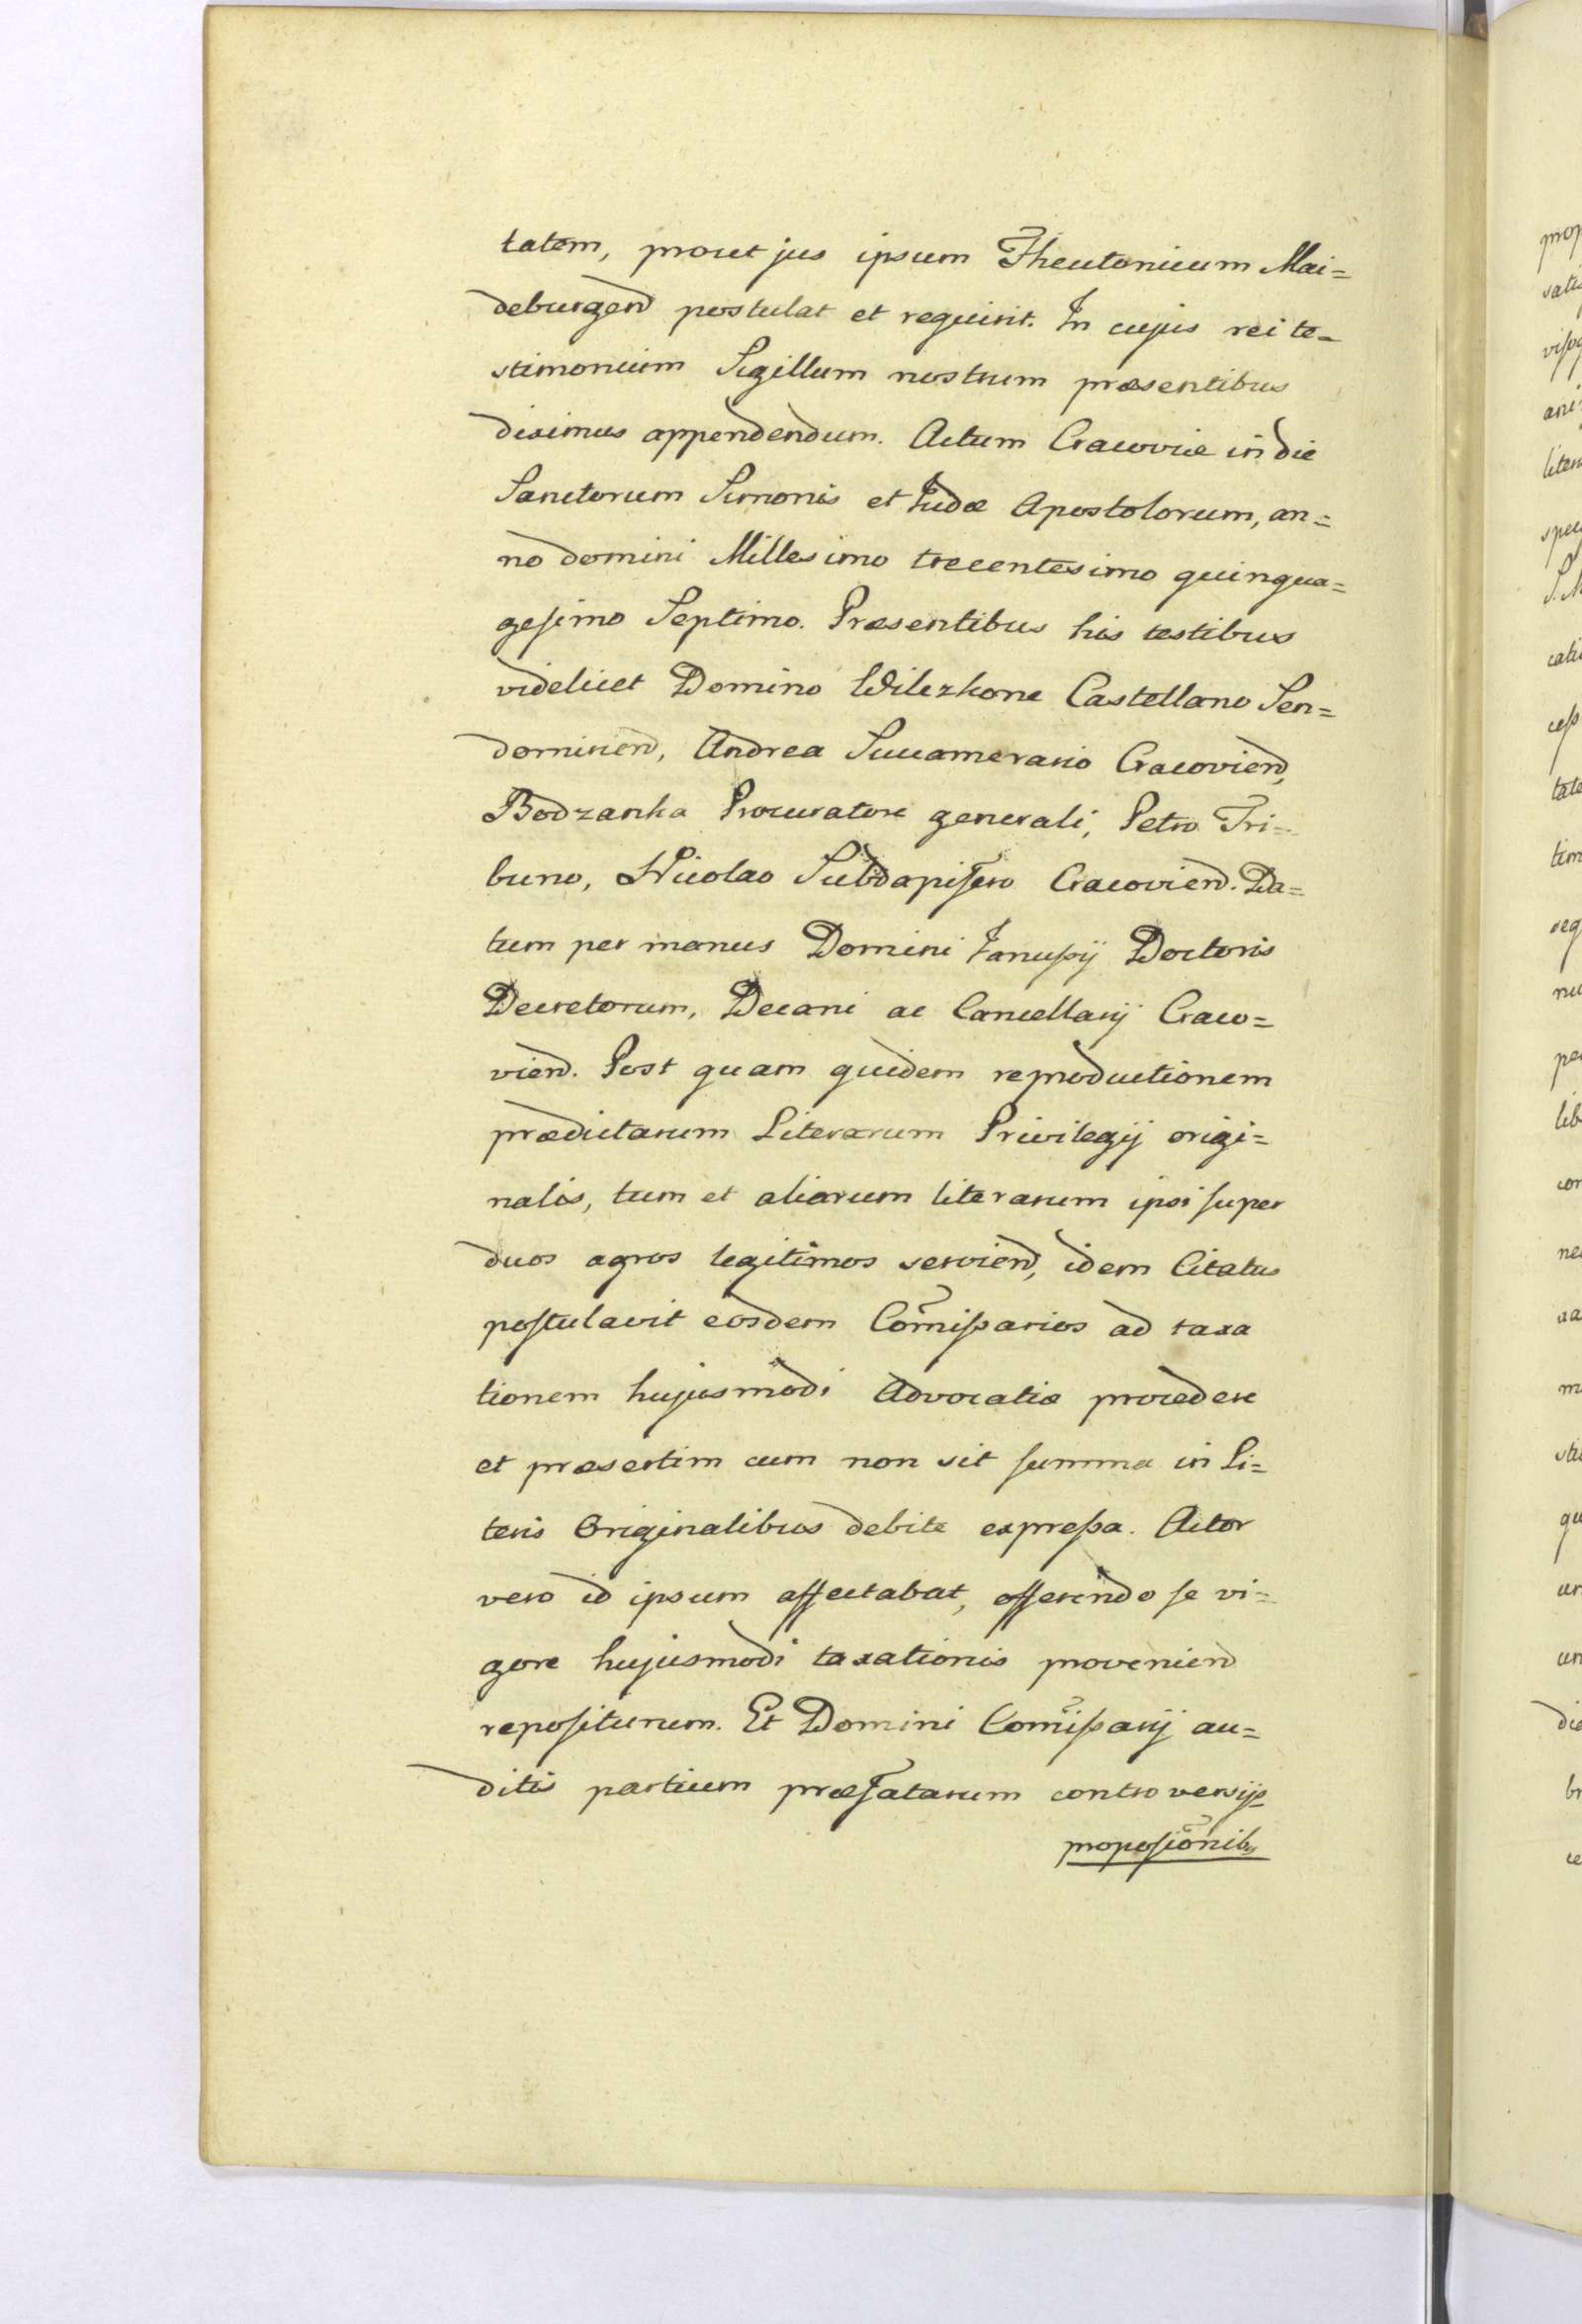 tatem, prout jus ipsum Theutonicum Mai=
deburgen postulat et requirit. In cujus rei te=
stimonium Sigillum nostrum præsentibus
diximus appendendum. Actum Cracoviæ in die
Sanctorum Simonis et Judæ Apostolorum, an=
no domini Millesimo trecentesimo quinqua=
gesimo Septimo. Præsentibus his testibus
videlicet Domino Wilczkone Castellano Sen=
domirien, Andrea Succamerario Cracovien,
Bodzanka Procuratore generali, Petro Tri=
buno, Nicolao Subdapifero Cracovien. Da=
tum per manus Domini Janussij Doctoris
Decretorum, Decani ac Cancellarij Craco=
vien. Post quam quidem reproductionem
prædictarum Literarum Privilegij origi=
nalis, tum et aliarum literarum ipsi super
duos agros legitimos servien, idem Citatus
postulavit eosdem Com̃issarios ad taxa
tionem hujusmodi Advocatiæ procedere
et præsertim cum non sit summa in Li=
teris Originalibus debite expressa. Actor
vero id ipsum affectabat, offerendo se vi=
gore hujusmodi taxationis provenien
repositurum. Et Domini Com̃issarij au=
ditis partium præfatarum controversijs
proposiõnib9